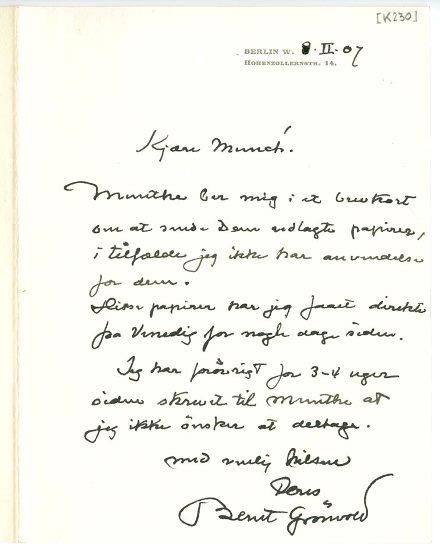 [K230]
BERLIN W. 8. II. 07
HOHENZOLLERNSTR. 14.
Kjære Munch!
Munthe ber mig i et brevkort
om at sende Dem vedlagte papirer,
i tilfælde jeg ikke har anvendelse
for dem.
Disse papirer har jeg faaet direkte
fra Venedig for nogle dage siden.
Jeg har forøvrigt for 3-4 uger
siden skrevet til Munthe at
jeg ikke ønsker at deltage.
med venlig hilsen
Deres
Bernt Grönvold